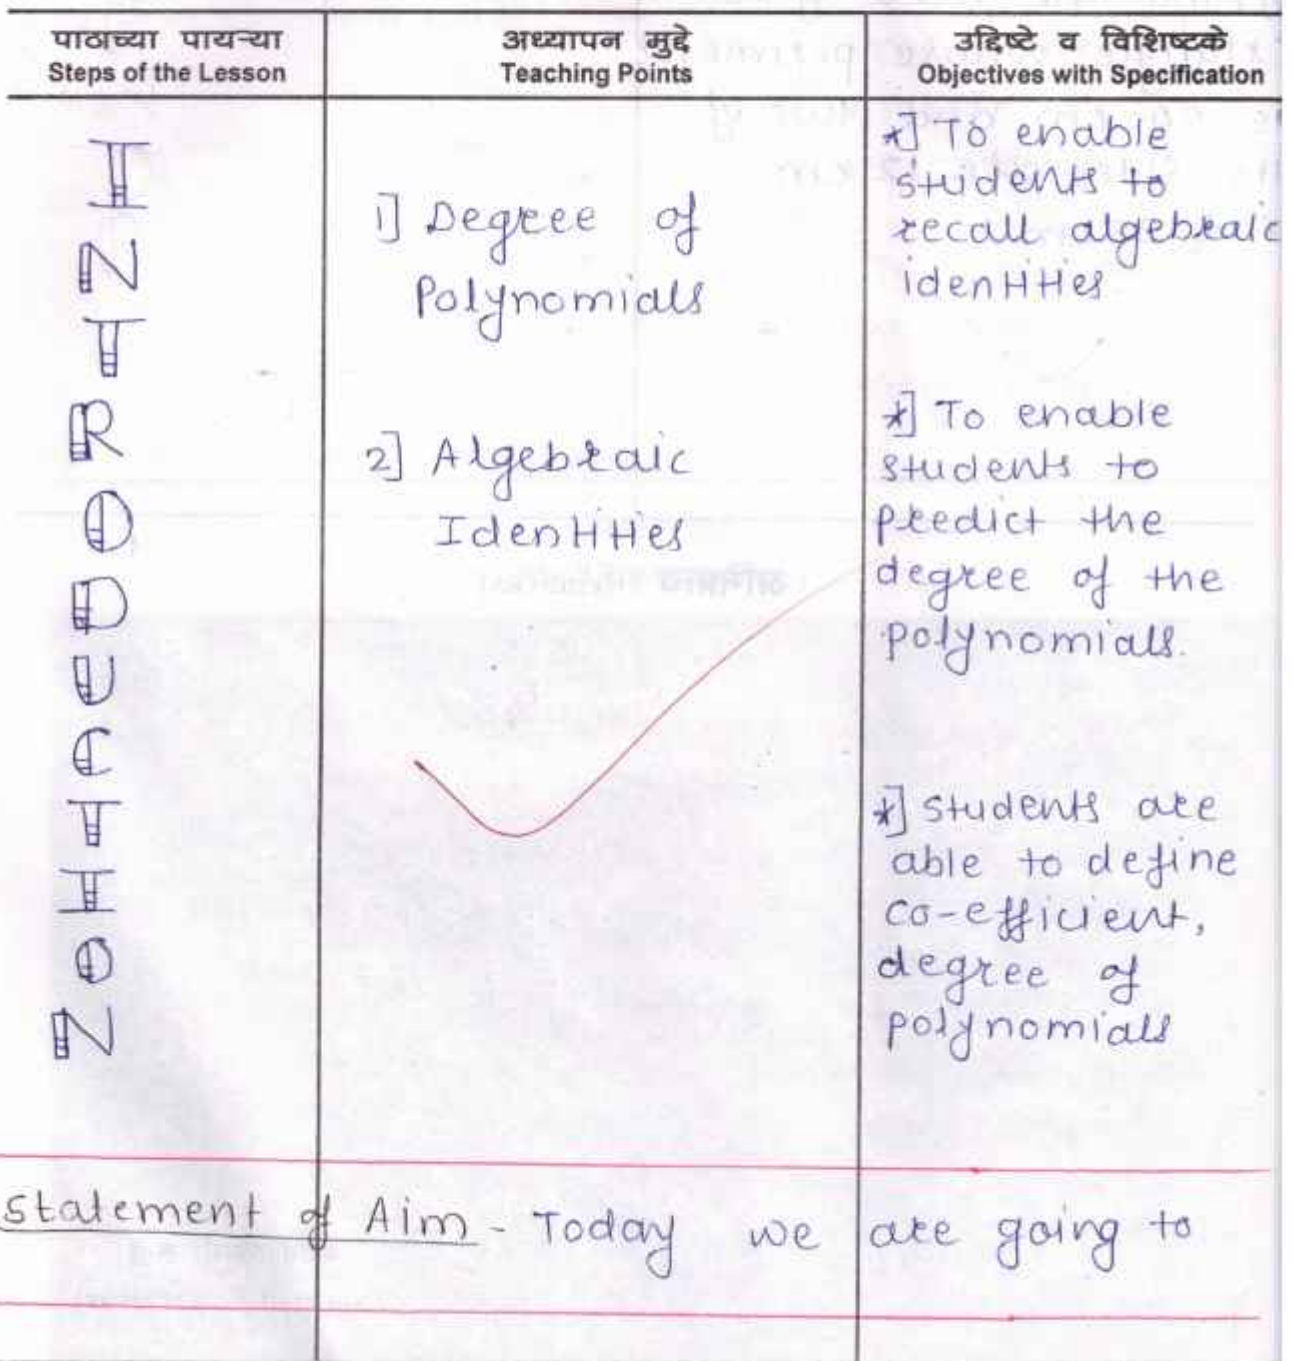 पाठाच्या पायऱ्या
Steps of the Lesson
अध्यापन मुद्दे
Teaching Points
उद्दिष्टे व विशिष्टके
Objectives with Specification
I
N
T
R
O
D
U
C
T
I
O
N
1] Degree of
Polynomials
2] Algebraic
Identities
*] To enable
students to
recall algebraic
identities
*] To enable
students to
predict the
degree of the
polynomials.
*] students are
able to define
co-efficient,
degree of
polynomials
Statement of Aim - Today we are going to